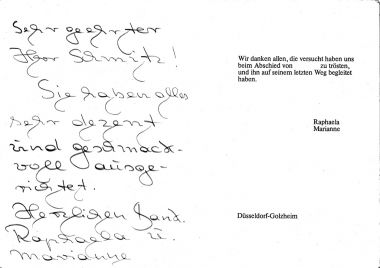 Sehr geehrter
Herr Schmitz!
Sie haben alles
sehr dezent
und geschmack-
voll ausge-
richtet.
Herzlichen Dank.
Raphaela u.
Marianne
Wir danken allen, die versucht haben uns
beim Abschied von zu trösten,
und ihn auf seinem letzten Weg begleitet
haben.
Raphaela
Marianne
Düsseldorf-Golzheim